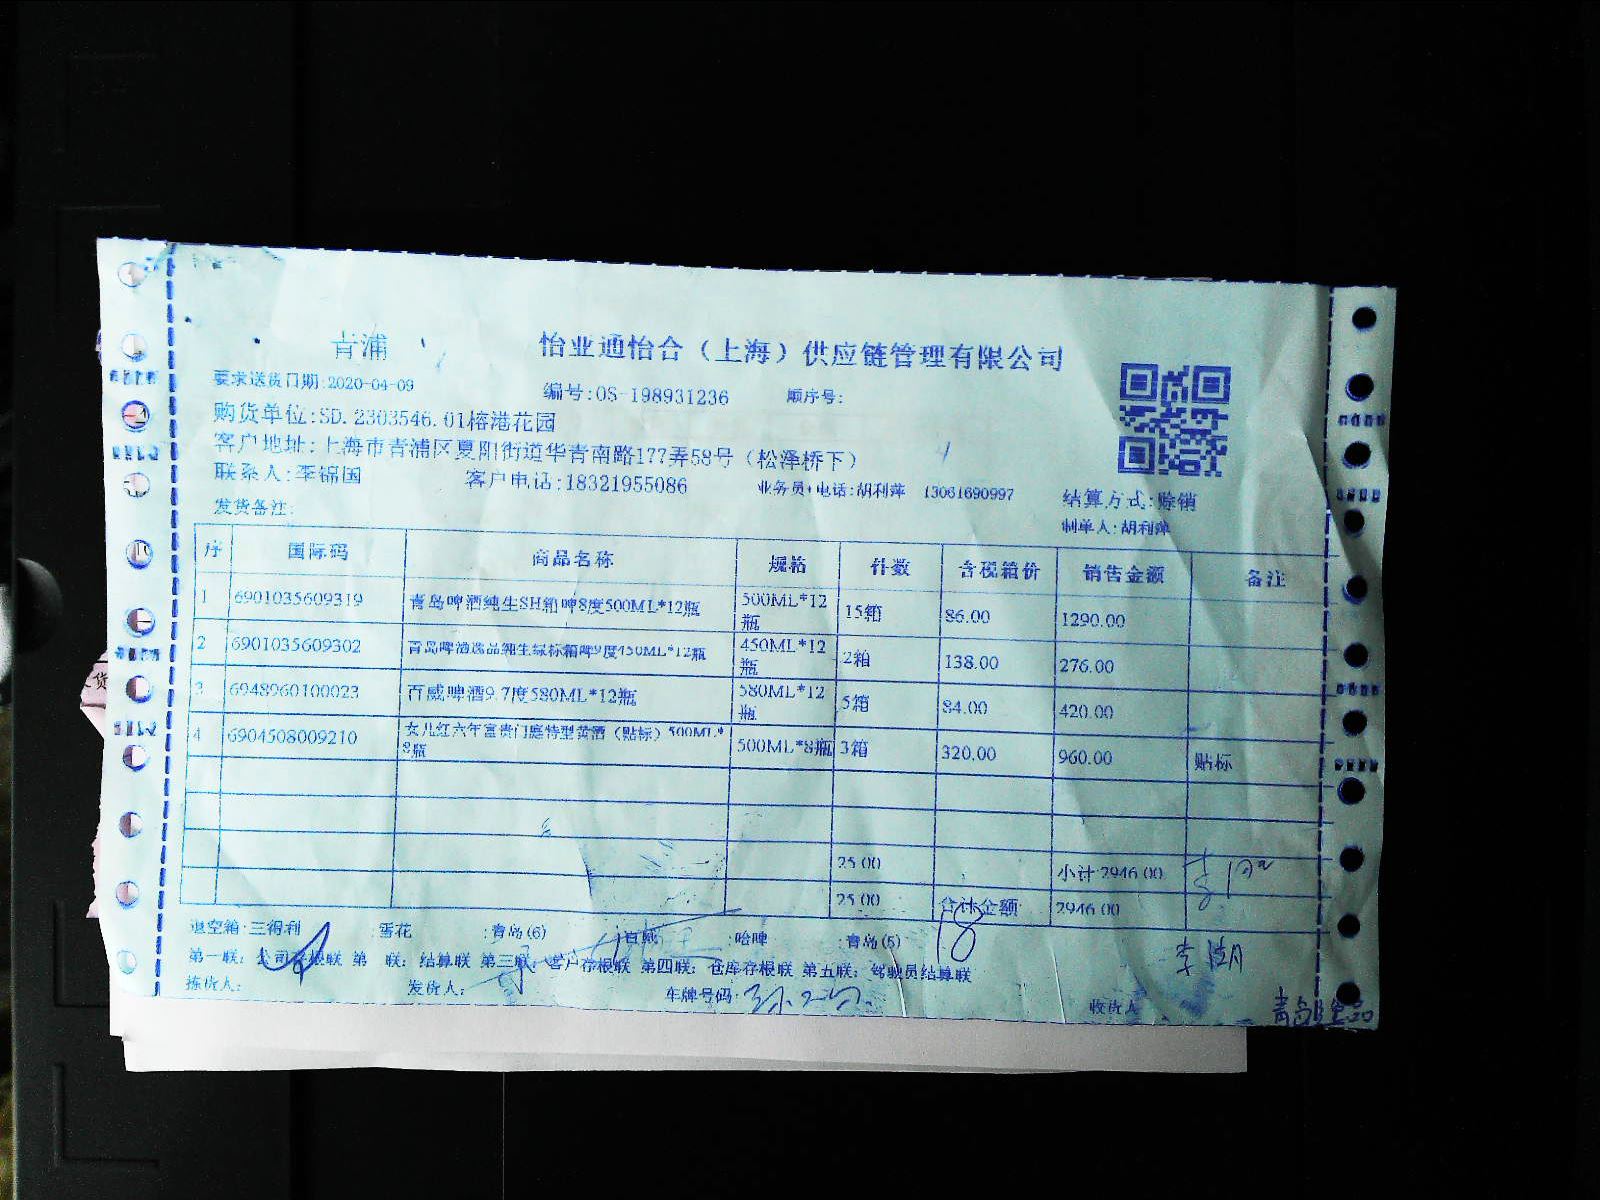 青浦
怡业通怡合（上海）供应链管理有限公司
要求送货日期:2020-04-09
编号:OS-198931236 顺序号:
购货单位:SD.2303546.01榕港花园
客户地址:上海市青浦区夏阳街道华青南路177弄58号（松泽桥下）
联系人:李锦国 客户电话:18321955086 业务员+电话:胡利萍 13061690997 结算方式:赊销
发货备注: 制单人:胡利萍
序 国际码 商品名称 规格 件数 含税箱价 销售金额 备注
1 6901035609319 青岛啤酒纯生SH箱啤8度500ML*12瓶 500ML*12瓶 15箱 86.00 1290.00
2 6901035609302 青岛啤酒逸品纯生绿标箱啤9度450ML*12瓶 450ML*12瓶 2箱 138.00 276.00
3 6948960100023 百威啤酒9.7度580ML*12瓶 580ML*12瓶 5箱 84.00 420.00
4 6904508009210 女儿红六年富贵门庭特型黄酒（贴标）500ML*8瓶 500ML*8瓶 3箱 320.00 960.00 贴标
25.00 小计:2946.00
25.00 合计金额 2946.00
退空箱:三得利 :雪花 :青岛(6) :百威 :哈啤 :青岛(5) 18
第一联：公司存根联 第 联：结算联 第三联：客户存根联 第四联：仓库存根联 第五联：驾驶员结算联
拣货人: 发货人: 车牌号码: 收货人